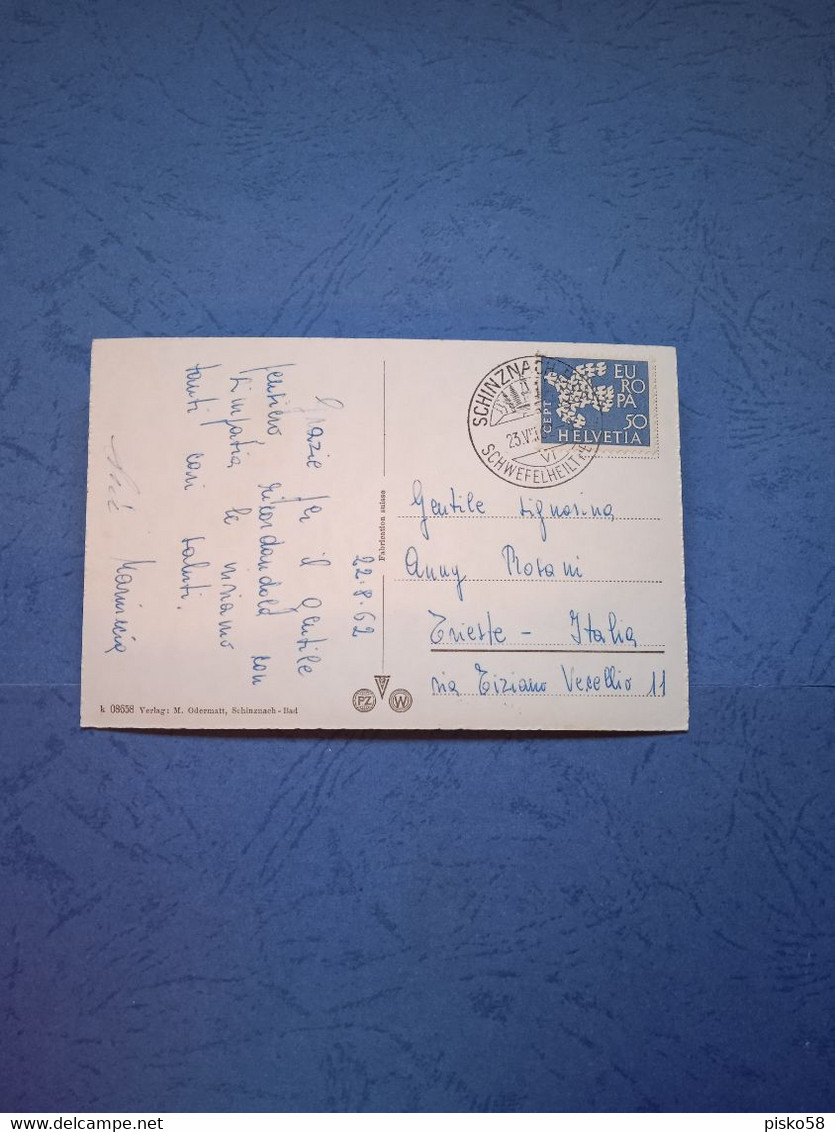 22.8.62
Grazie per il gentile
pensiero ricordandola con
simpatia le inviamo
tanti cari saluti.
k 08658 Verlag: M. Odermatt, Schinznach-Bad
Fabrication suisse
PZ
W
SCHINZNACH
23.VI
VI
SCHWEFELHEILT
CEPT
EU
RO
PA
50
HELVETIA
Gentile Signorina
Anny
Trieste - Italia
via Tiziano Vecellio 11
www.delcampe.net
pisko58